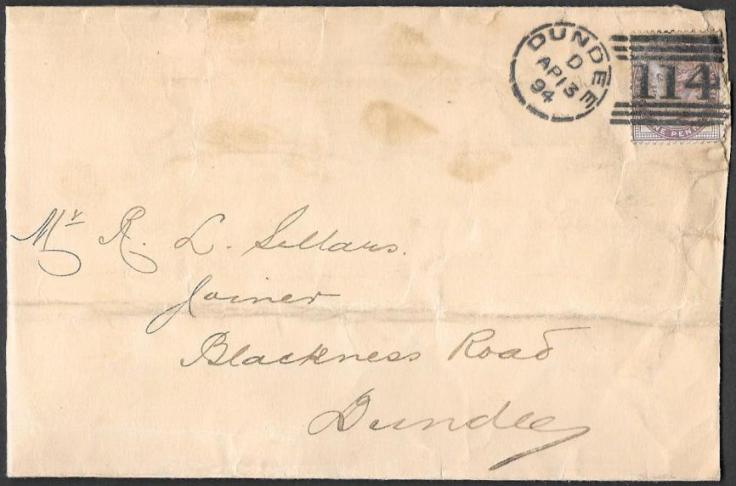 DUNDEE
D
AP 13
94
114
ONE PENNY
Mr R. L. Sellars.
Joiner
Blackness Road
Dundee